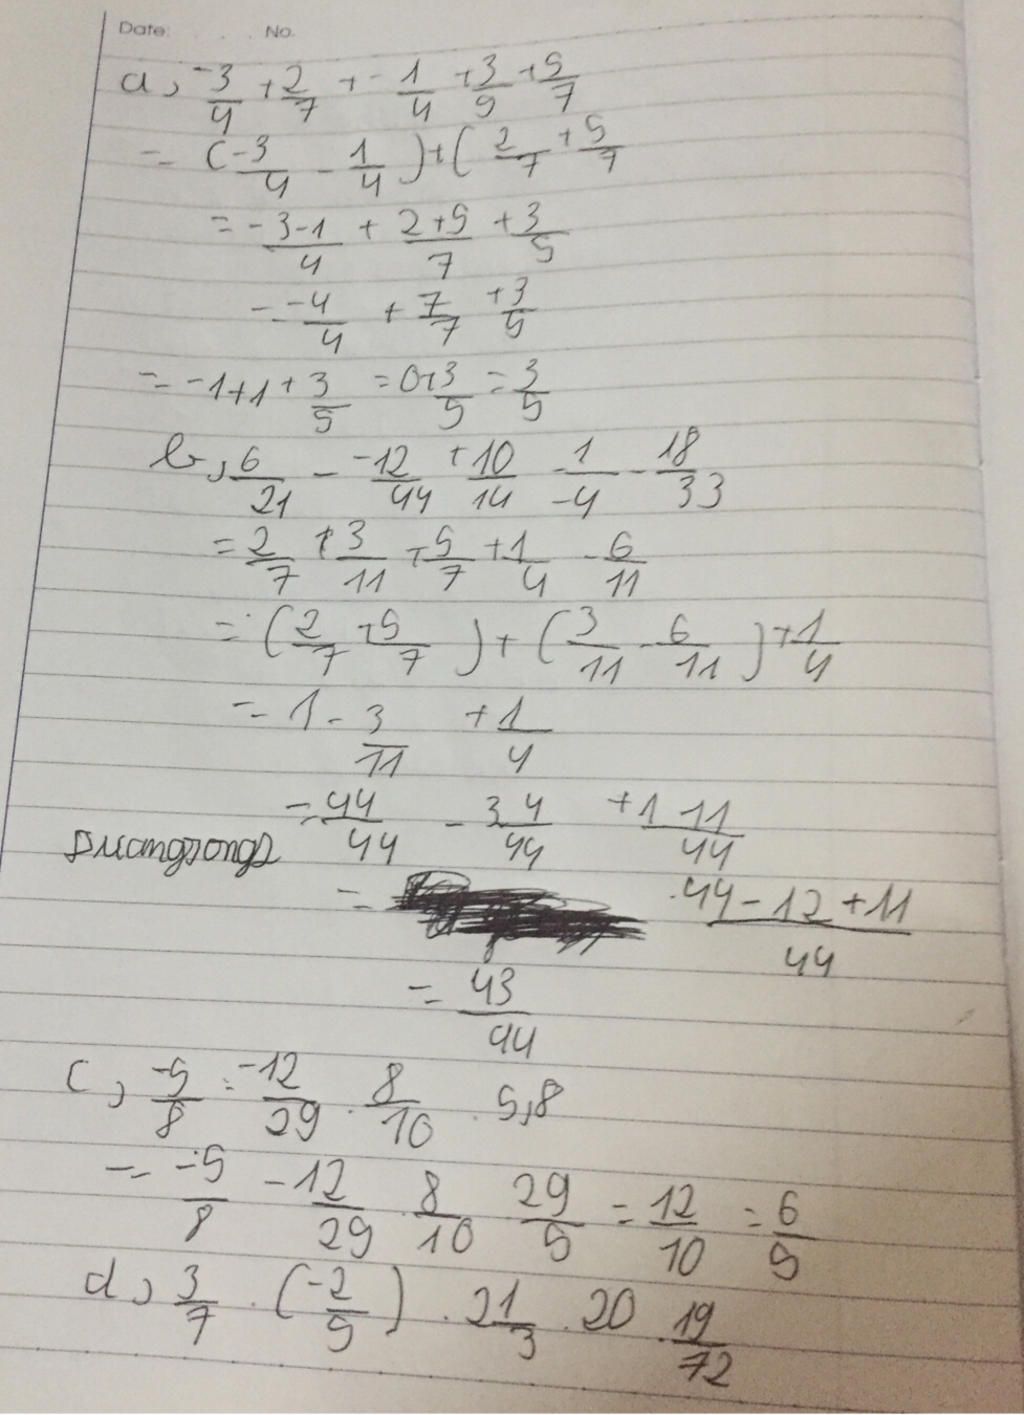 Date: No.
a, -3/4 + 2/7 + -1/4 + 3/5 + 5/7
= (-3/4 - 1/4) + (2/7 + 5/7
= -3-1/4 + 2+5/7 + 3/5
= -4/4 + 7/7 + 3/5
= -1+1+3/5 = 0+3/5 = 3/5
b, 6/21 - -12/44 + 10/14 - 1/-4 - 18/33
= 2/7 + 3/11 + 5/7 + 1/4 - 6/11
= (2/7 + 5/7) + (3/11 - 6/11) + 1/4
= 1 - 3/11 + 1/4
= 44/44 - 3 4/44 + 1 11/44
= 44-12+11/44
= 43/44
c, -5/8 . -12/29 . 8/10 . 5,8
= -5/8 -12/29 . 8/10 29/5 = 12/10 = 6/5
d, 3/7 . (-2/5) . 2 1/3 . 20 . 19/72